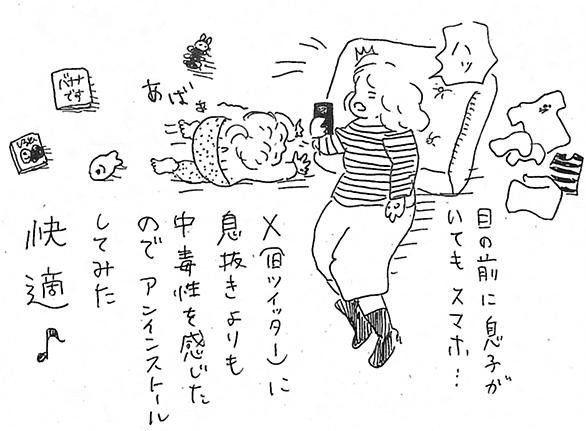 ハッ
目の前に息子が
いてもスマホ…
X(旧ツイッター)に
息抜きよりも
中毒性を感じた
ので アンインストール
してみた
快適♪
あばぁ
バナナ
です